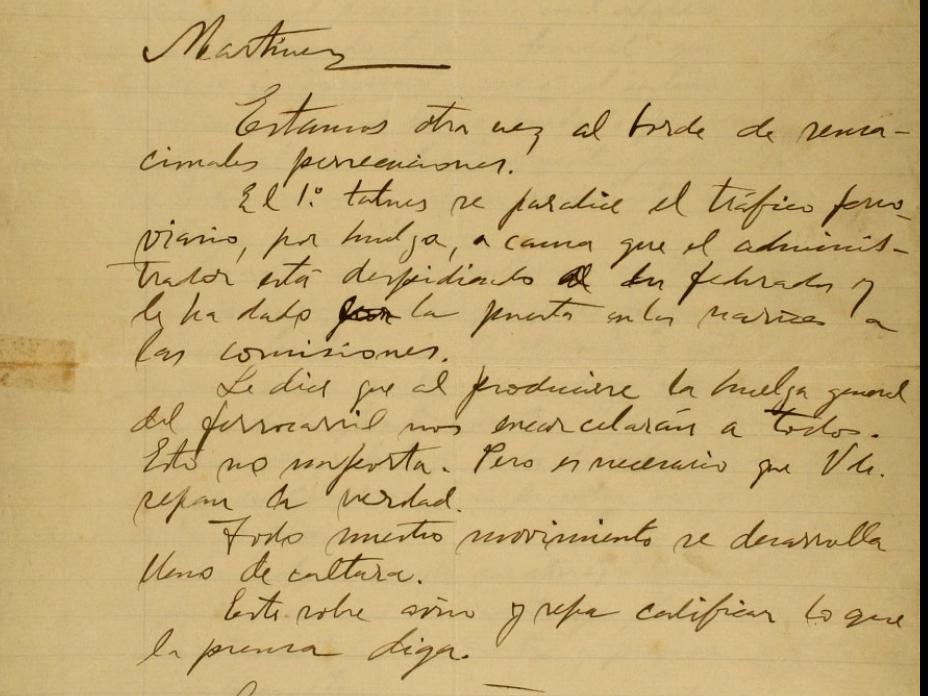 Martinez
Estamos otra vez al borde de sensa-
cionales persecuciones.
El 1º. se paralice el tráfico ferro-
viario, por huelga, a causa que el adminis-
trador está despidiendo federados y
le ha dado la puerta en las narices a
las comisiones.
Se dice que al producirse la huelga general
del ferrocarril nos encarcelarán a todos.
Esto no importa. Pero es necesario que Vds.
sepan la verdad.
Todo nuestro movimiento se desarrolla
lleno de cultura.
Esté sobre aviso y sepa calificar lo que
la prensa diga.